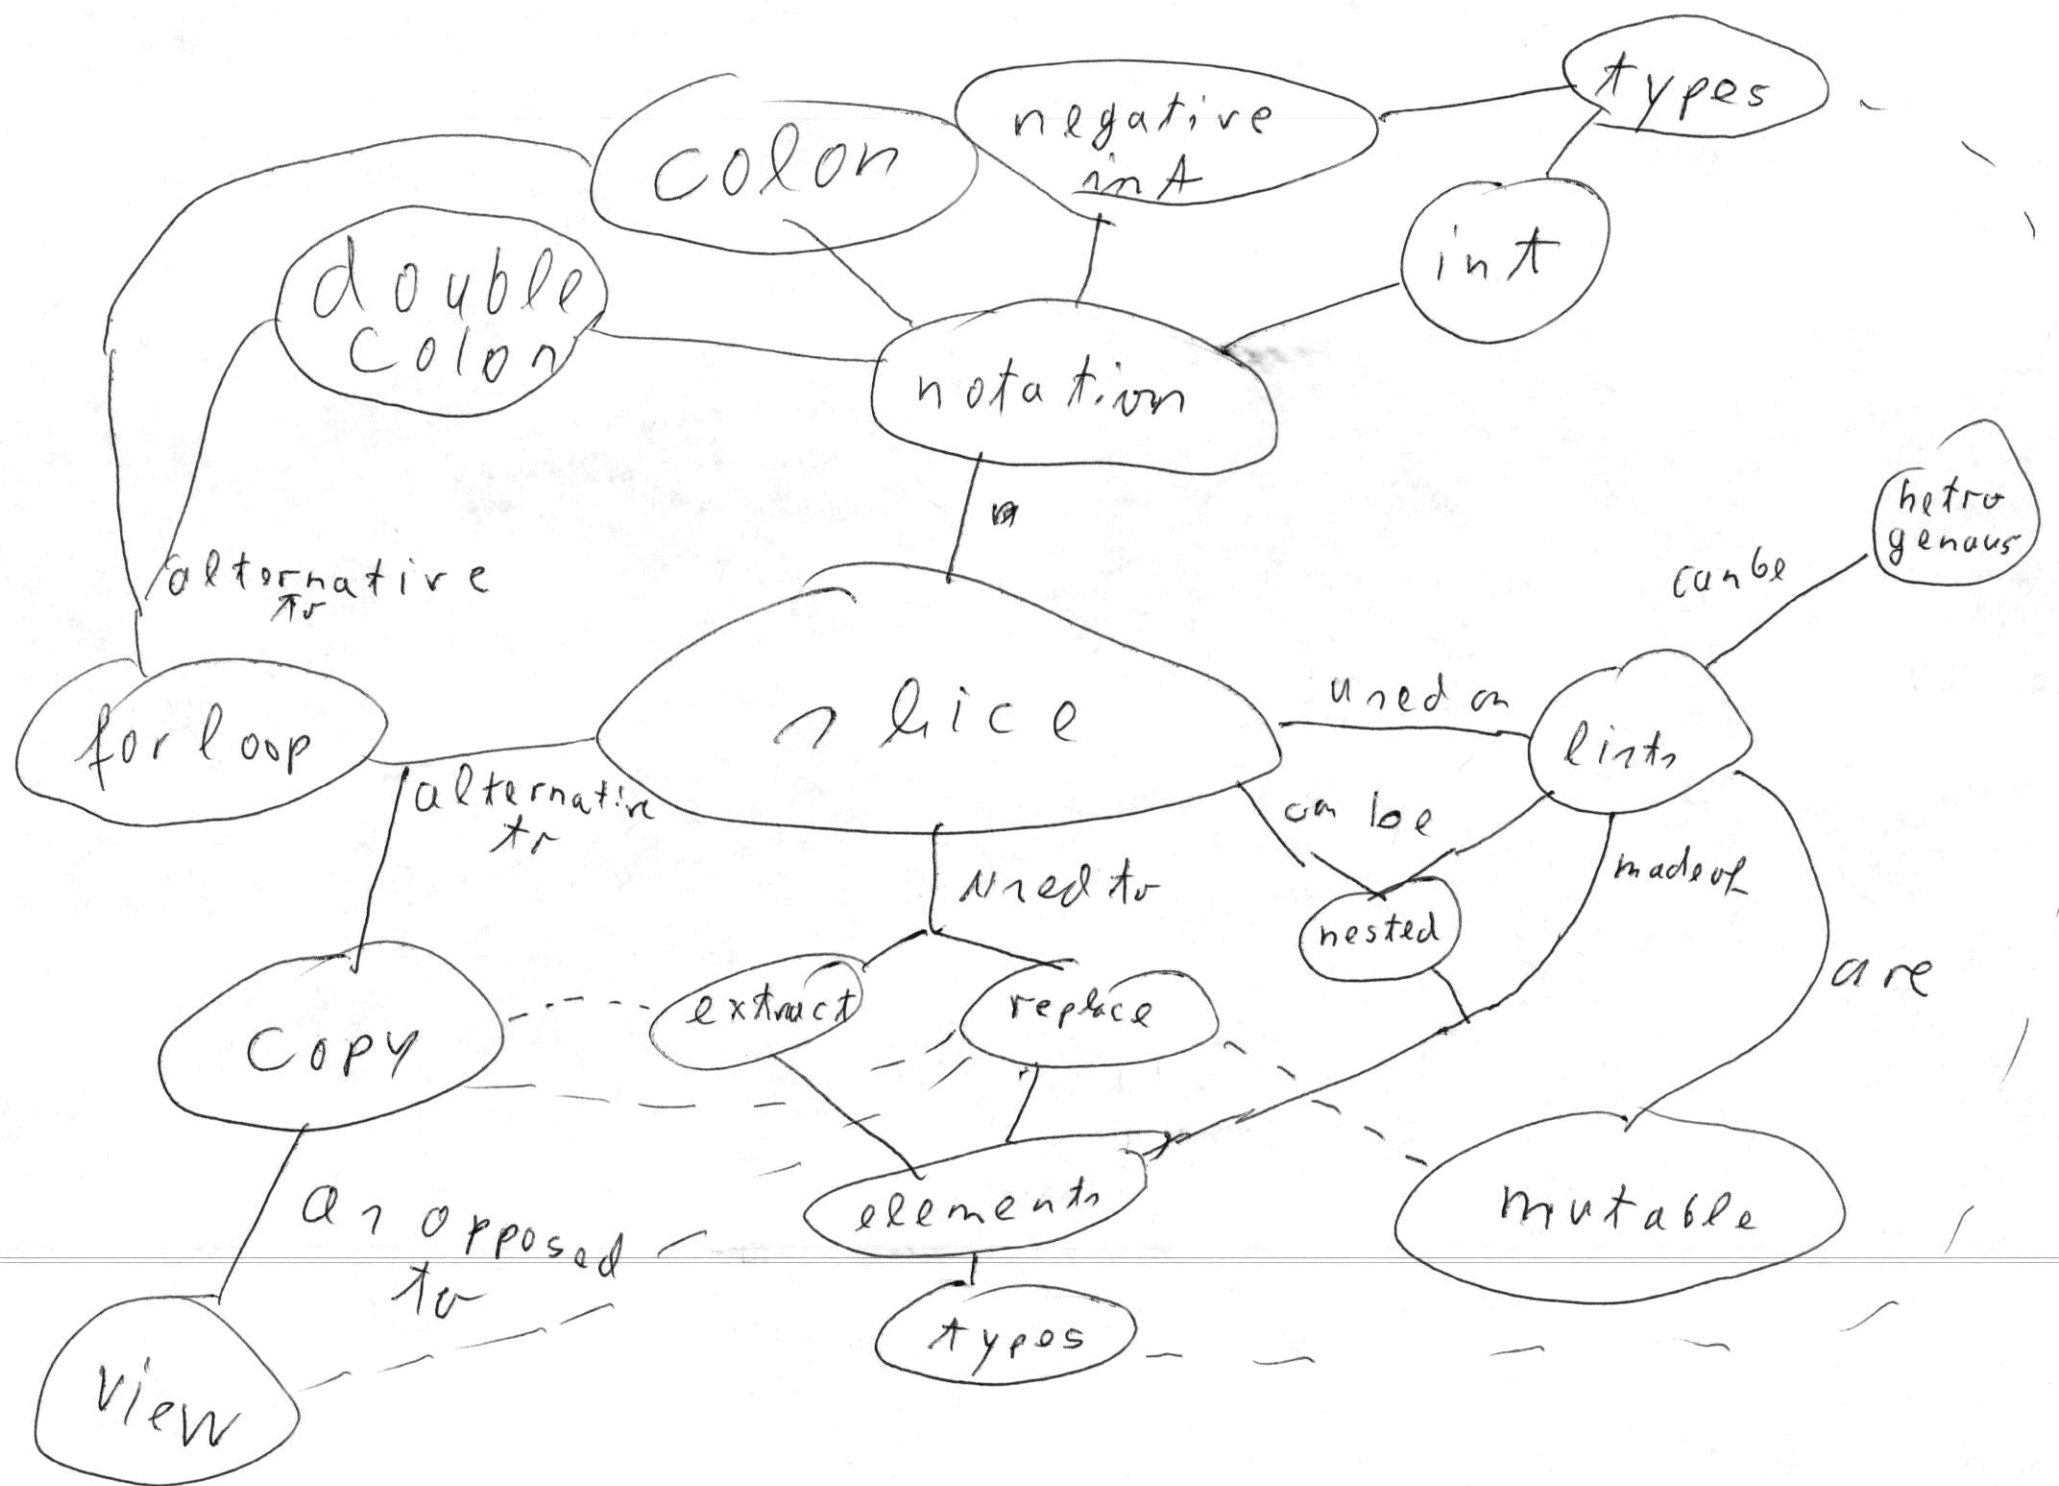 types
negative
int
colon
int
double
colon
notation
hetro
genaus
can be
alternative
to
slice
used on
lists
for loop
alternative
to
can be
made of
used to
nested
are
extract
replace
copy
elements
mutable
as opposed
to
types
view